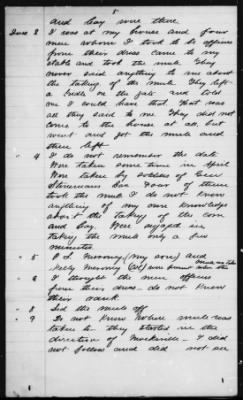 5
and boy were there.
Ques 3 I was at my house and four
men whom I took to be officers
from their dress came to my
stable and took the mule They
never said anything to me about
the taking of the mule They left
a bridle on the gate and told
me I could have that. That was
all they said to me They did not
come to the house at all but
went and got the mule and
then left
" 4 I do not remember the date
Were taken some time in April
Were taken by soldiers of Gen
Stoneman's Four of them
took the mule I do not know
anything of my own knowledge
about the taking of the corn
and hay. Were engaged in
taking the mule only a few
minutes.
" 5 (my son) and
Nelly (Col) were present when the
mule was taken
" 6 I thought the men officers
from their dress - do not know
their rank
" 8 Led the mule off
" 9 Do not know where mule was
taken to they started in the
direction of Mocksville - I did
not follow and did not see
1 1